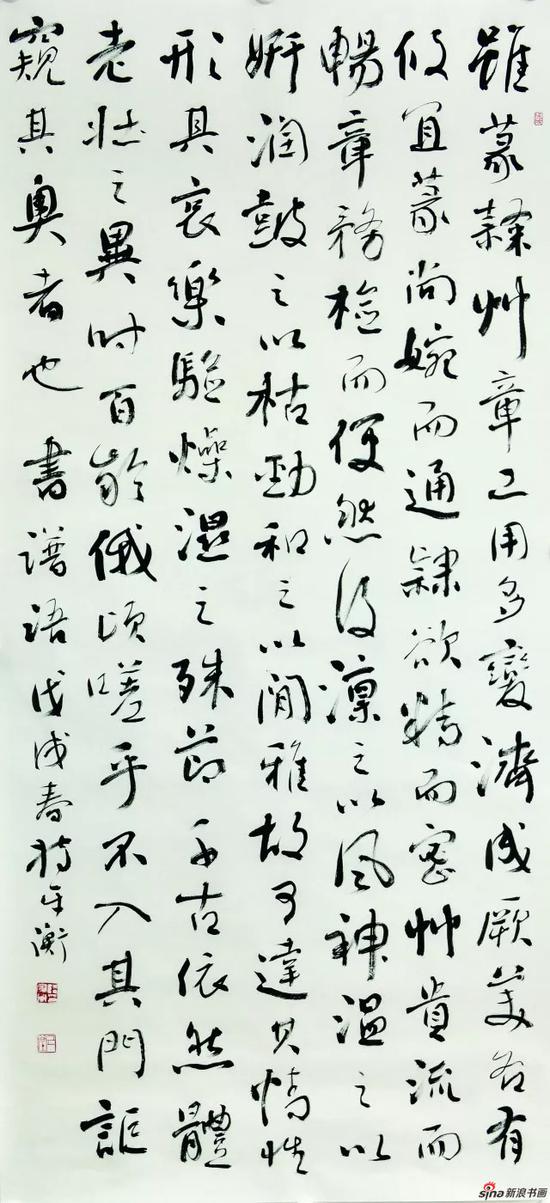 雖篆隸艸章工用多變濟成厥美各有
攸宜篆尚婉而通隸欲精而密艸貴流而
暢章務檢而便然後凛之以風神温之以
妍潤鼓之以枯勁和之以閒雅故可達其情性
形其哀樂驗燥湿之殊節千古依然體
老壯之異時百齡俄頃嗟乎不入其門詎
窺其奥者也 書譜语戊戌春
sina新浪书画